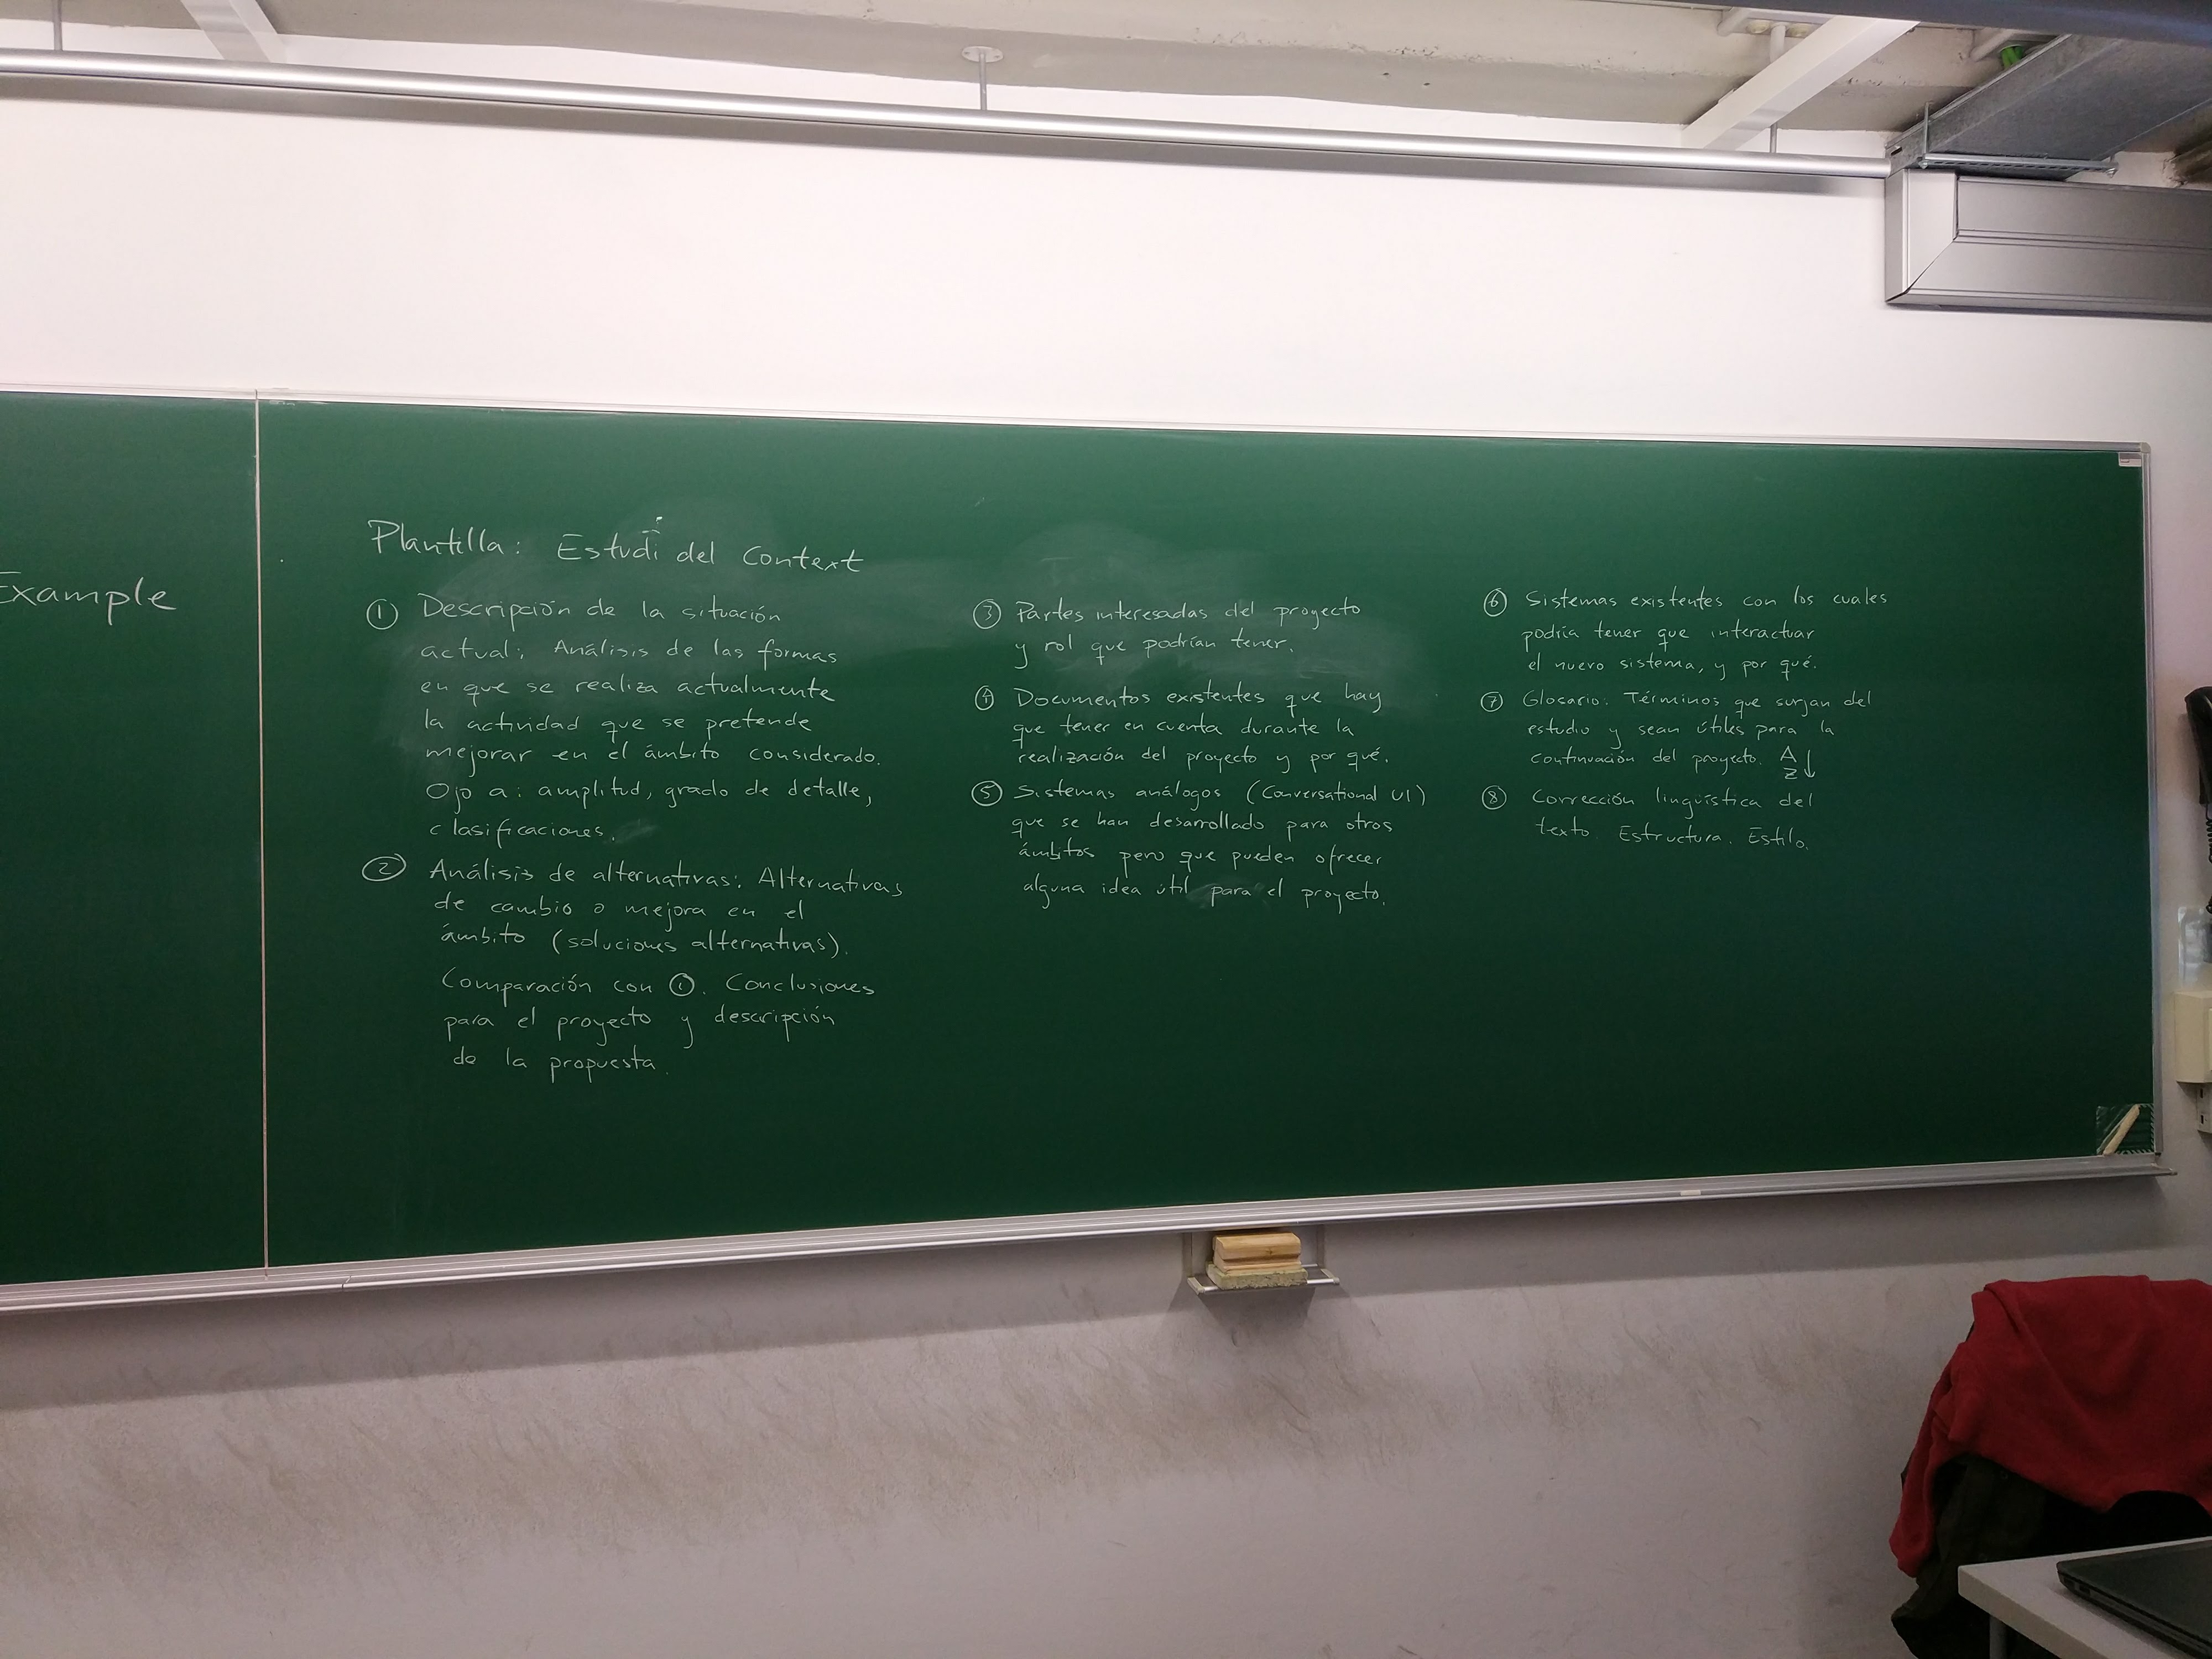 Example
Plantilla: Estudi del Context
① Descripción de la situación
actual: Análisis de las formas
en que se realiza actualmente
la actividad que se pretende
mejorar en el ámbito considerado.
Ojo a: amplitud, grado de detalle,
clasificaciones.
② Análisis de alternativas: Alternativas
de cambio o mejora en el
ámbito (soluciones alternativas).
Comparación con ①. Conclusiones
para el proyecto y descripción
de la propuesta.
③ Partes interesadas del proyecto
y rol que podrían tener.
④ Documentos existentes que hay
que tener en cuenta durante la
realización del proyecto y por qué.
⑤ Sistemas análogos (Conversational UI)
que se han desarrollado para otros
ámbitos pero que pueden ofrecer
alguna idea útil para el proyecto.
⑥ Sistemas existentes con los cuales
podría tener que interactuar
el nuevo sistema, y por qué.
⑦ Glosario: Términos que surjan del
estudio y sean útiles para la
continuación del proyecto. A
Z↓
⑧ Corrección lingüística del
texto. Estructura. Estilo.